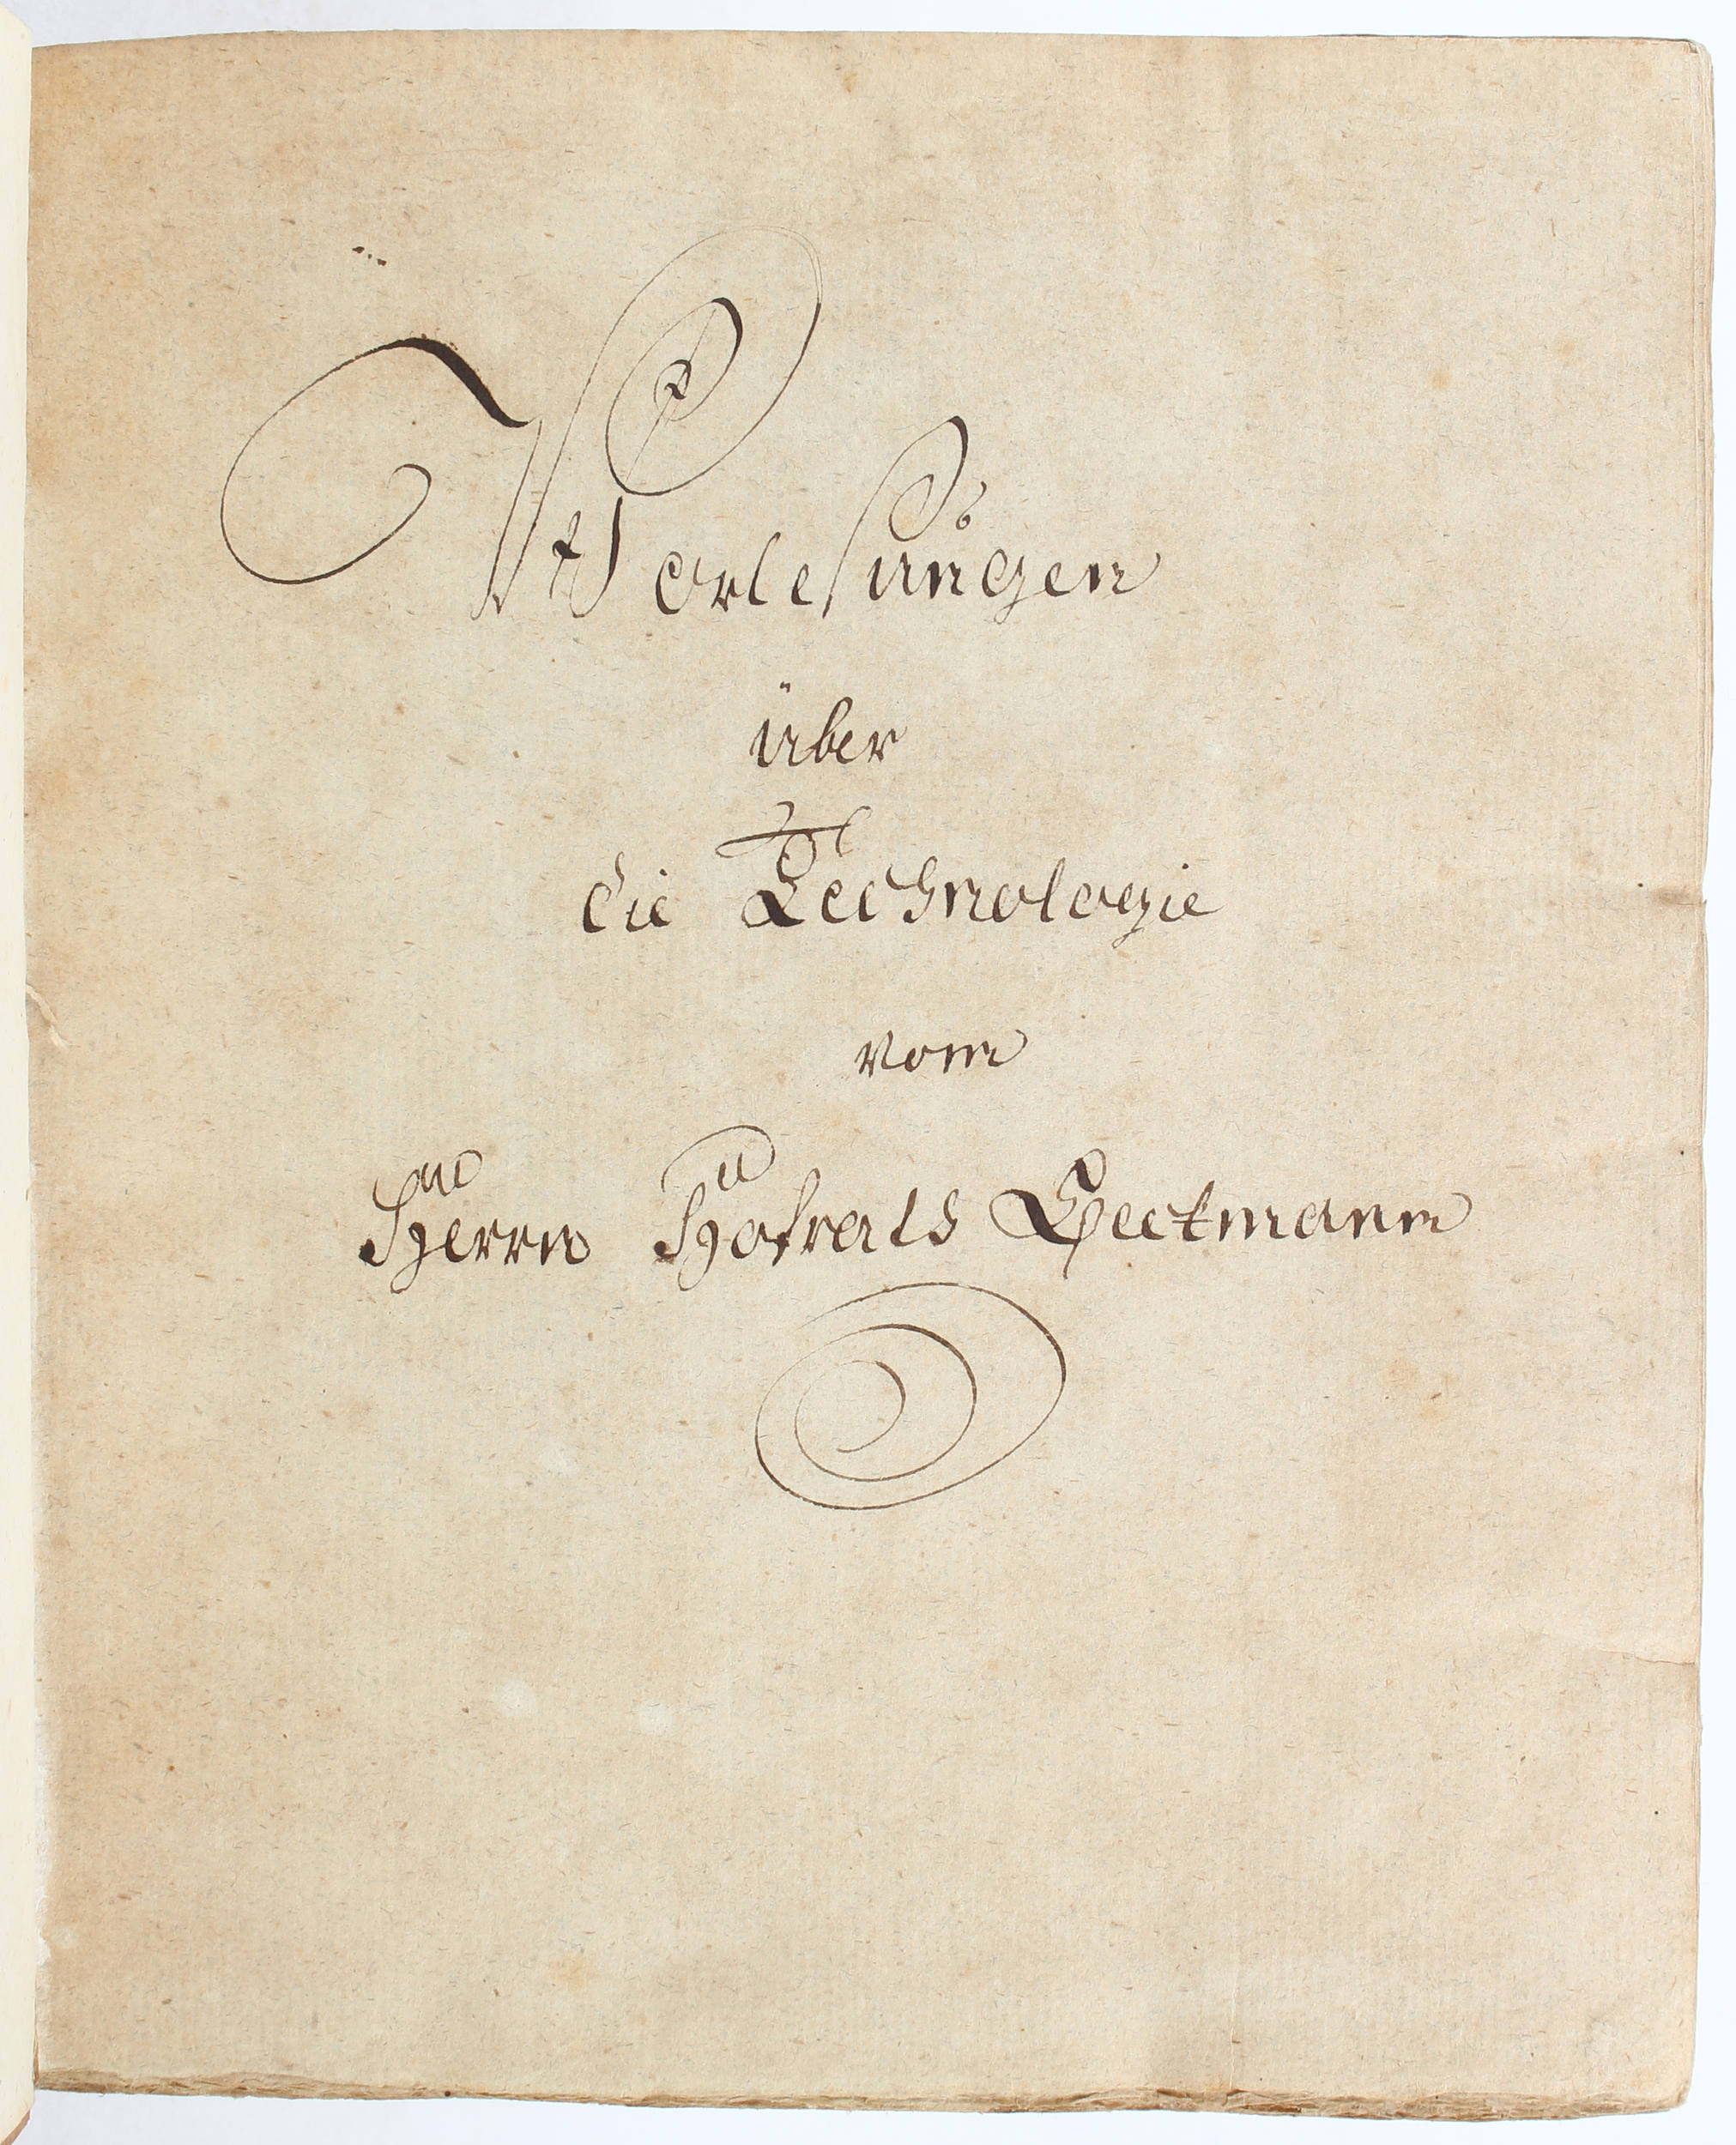 Vorlesungen
über
die Technologie
vom
Herrn Hofraths Beckmann